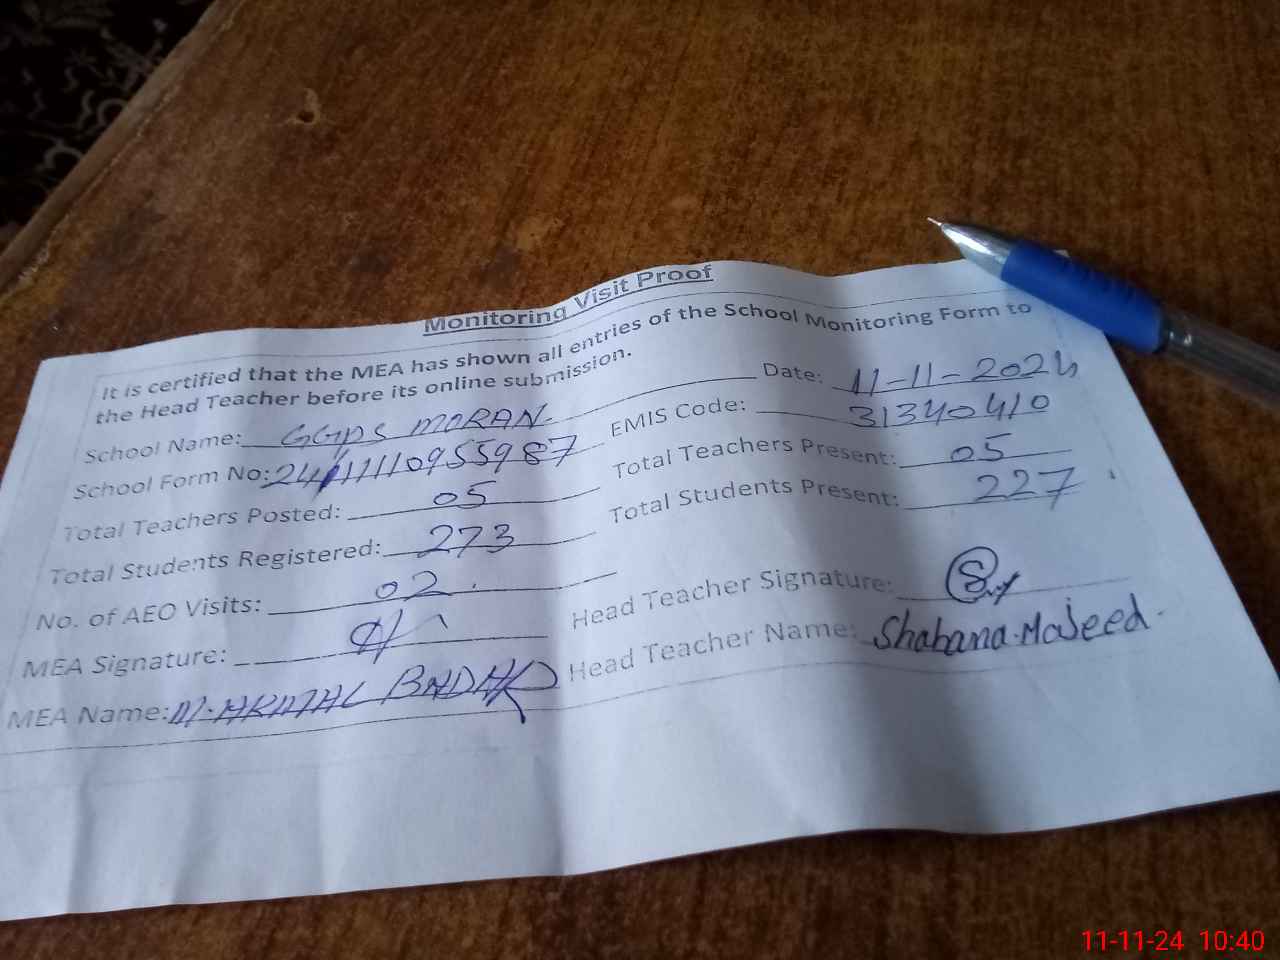 Monitoring Visit Proof
It is certified that the MEA has shown all entries of the School Monitoring Form to
the Head Teacher before its online submission.
School Name: GGPS MORAN Date: 11-11-2024
School Form No: 24111110955987 EMIS Code: 31340410
Total Teachers Posted: 05 Total Teachers Present: 05
Total Students Registered: 273 Total Students Present: 227
No. of AEO Visits: 02.
MEA Signature: Head Teacher Signature:
MEA Name: M. AKMAL Head Teacher Name: Shabana Majeed.
11-11-24 10:40